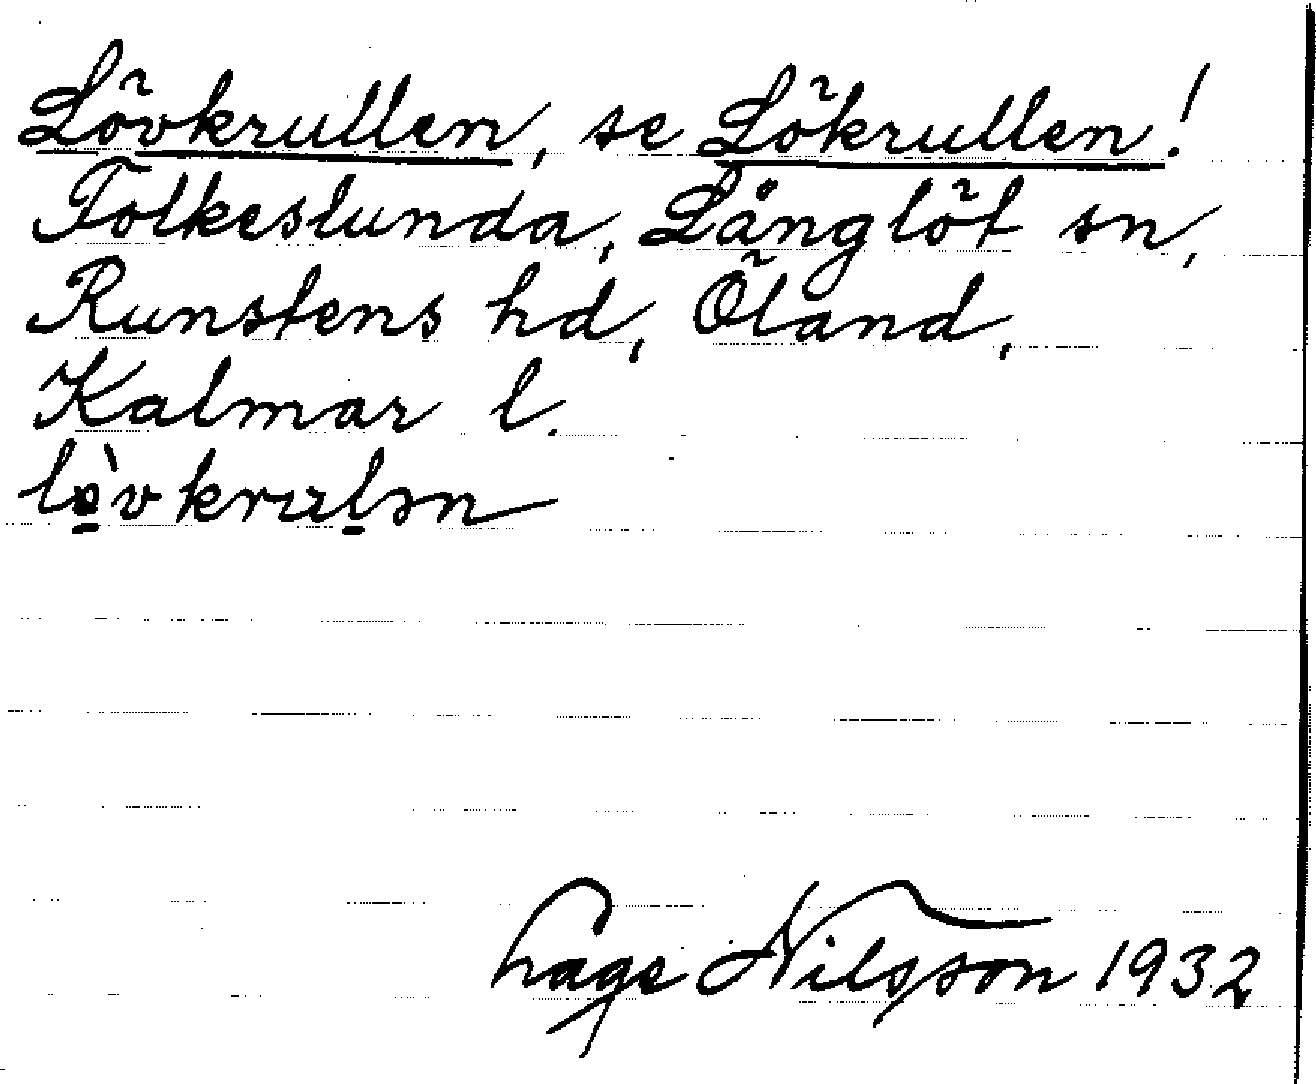 Lövkrullen, se Lökrullen!
Folkeslunda, Långlöt sn,
Runstens hd, Öland,
Kalmar l.
Nilsson 1932